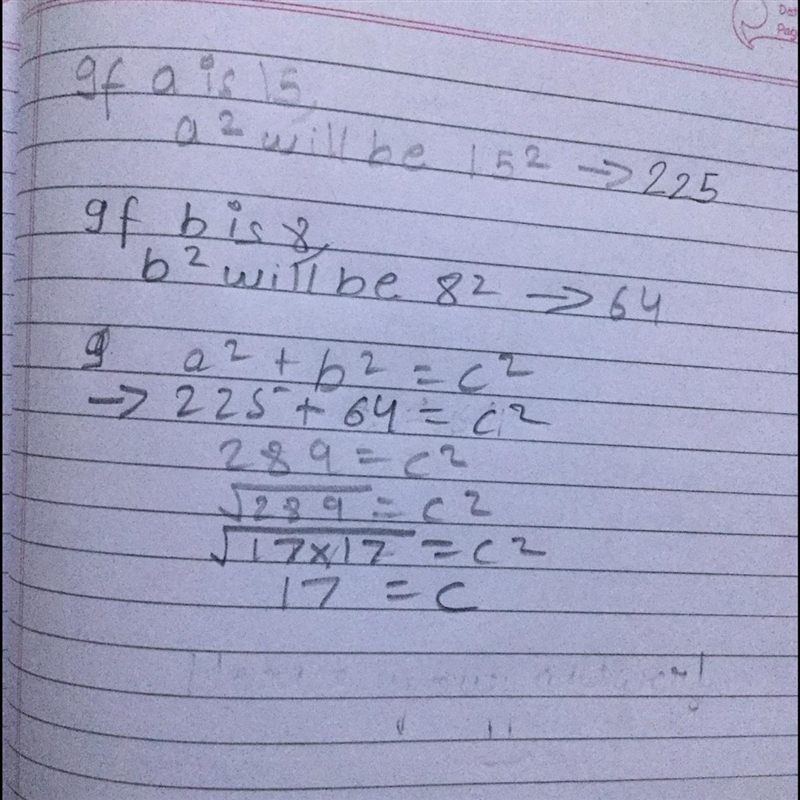 If a is 15,
a² will be 15² → 225
If b is 8,
b² will be 8² → 64
a² + b² = c²
→ 225 + 64 = c²
289 = c²
√289 = c²
√17×17 = c²
17 = c